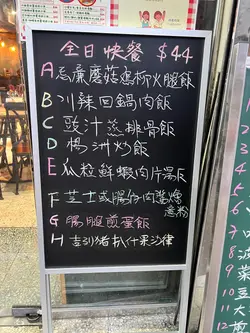 全日快餐 $44
A 忌廉蘑菇粟米火腿飯
B 川辣回鍋肉飯
C 豉汁蒸排骨飯
D 楊洲炒飯
E 瓜粒鮮蝦肉片湯飯
F 芝士或腸仔肉醬燴意粉
G 腸腿煎蛋飯
H 吉列猪扒什果沙律